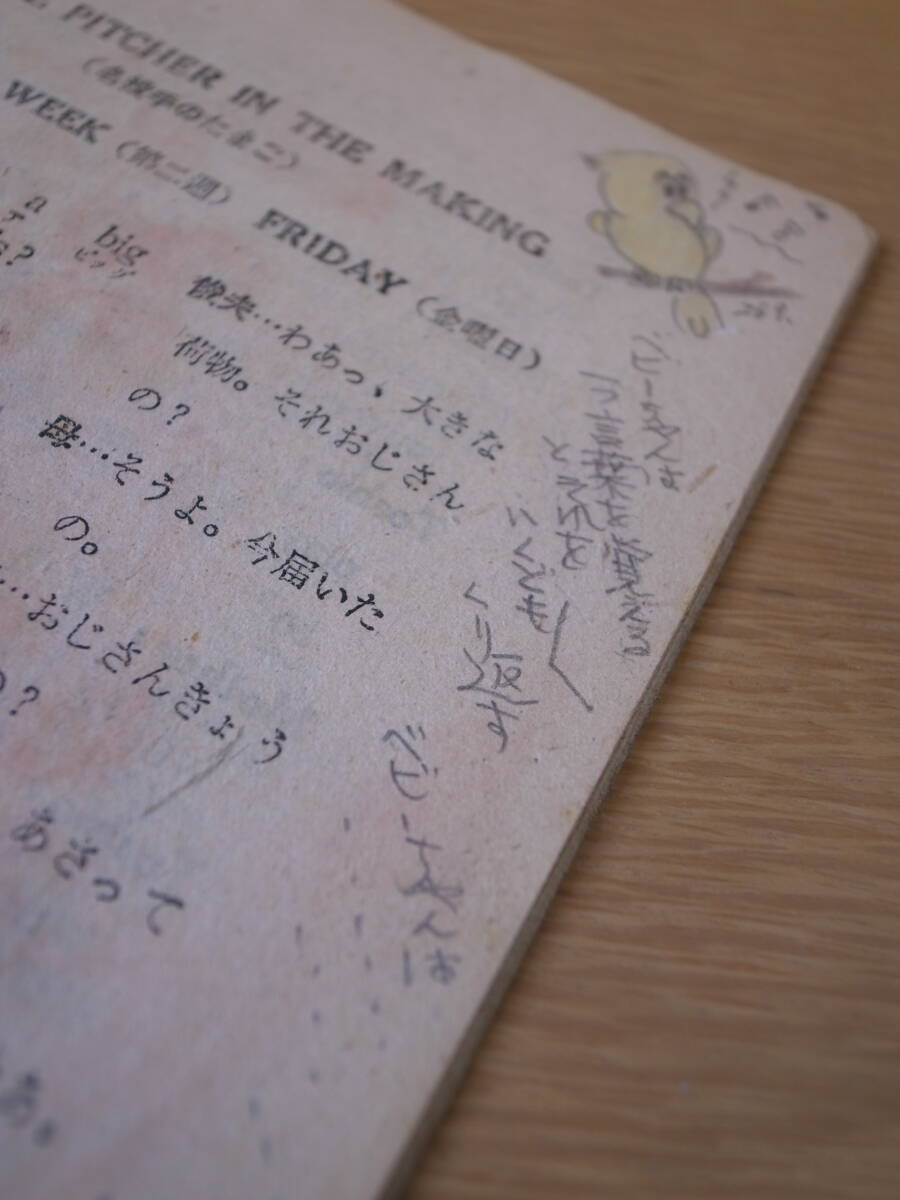 PITCHER IN THE MAKING
(名投手のたまご)
WEEK (第二週) FRIDAY (金曜日)
a
ア
big
ビッグ
s?
俊夫…わあっ、大きな
荷物。それおじさん
の?
母…そうよ。今届いた
の。
…おじさんきょう
の?
あさって
あ。
ジェーちゃんは
言葉を覚える
という
いくども
くり返す
ジェーちゃんは